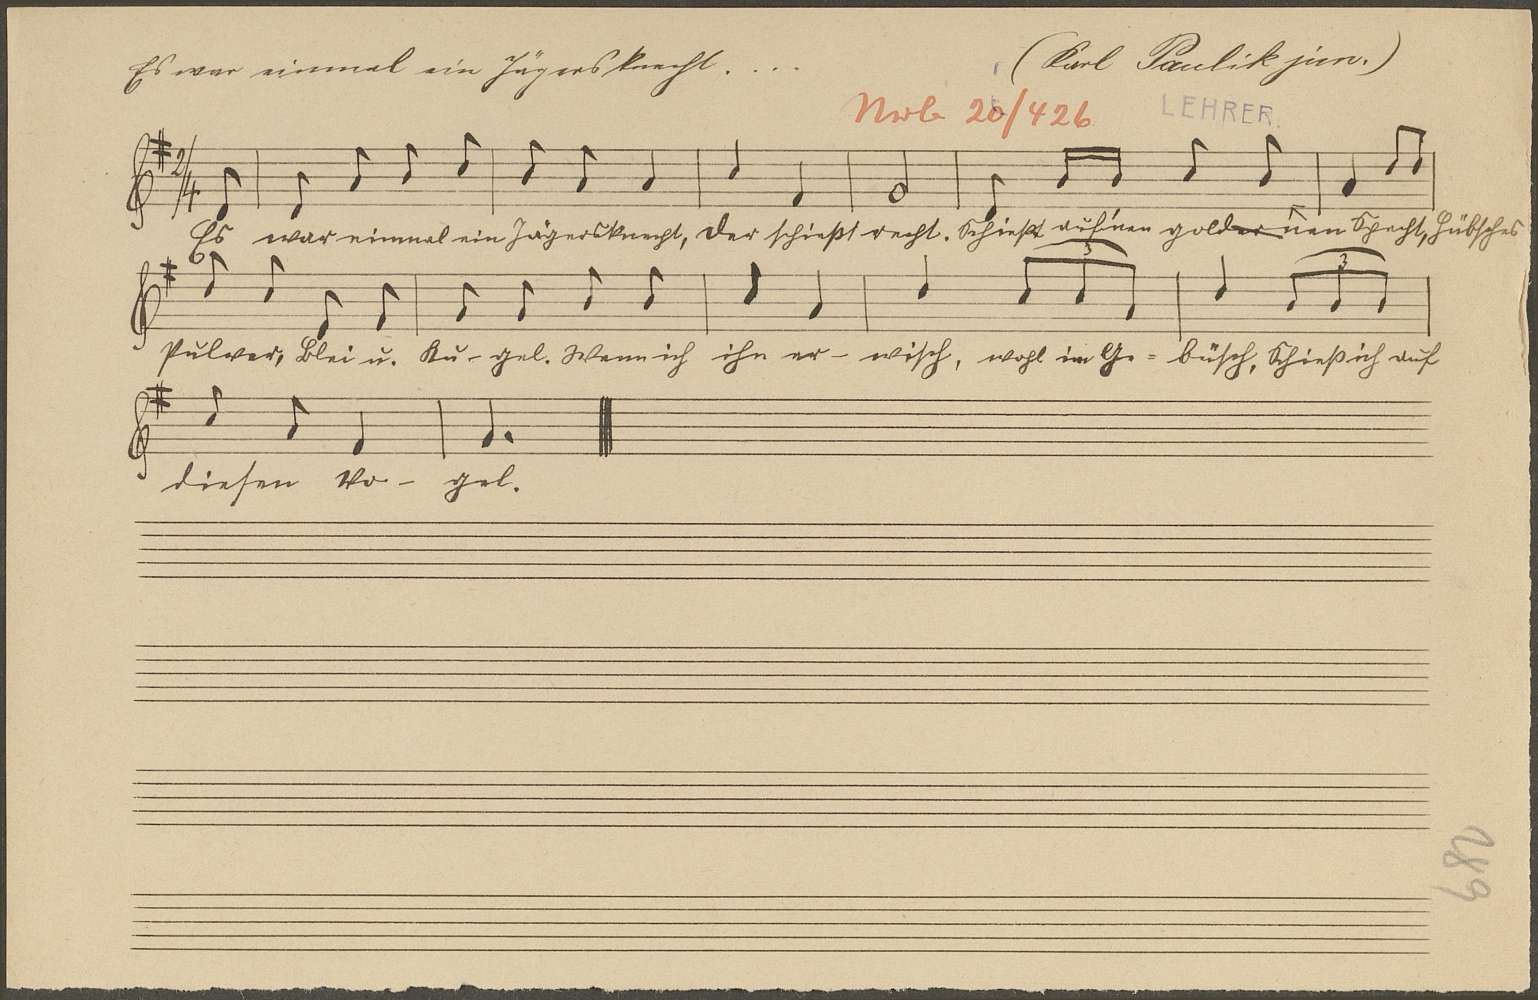 Es war einmal ein Jägersknecht. . . . (Karl Paulik jun.)
20/426 LEHRER.
2/4
Es war einmal ein Jägersknecht, der schießt recht. Schießt auf 'nen goldenen Specht, Hübsches
3 3
Pulver, Blei u. Ku- gel. Wenn ich ihn er- wisch, wohl im Ge- büsch, Schieß ich auf
diesen Vo- gel.
289